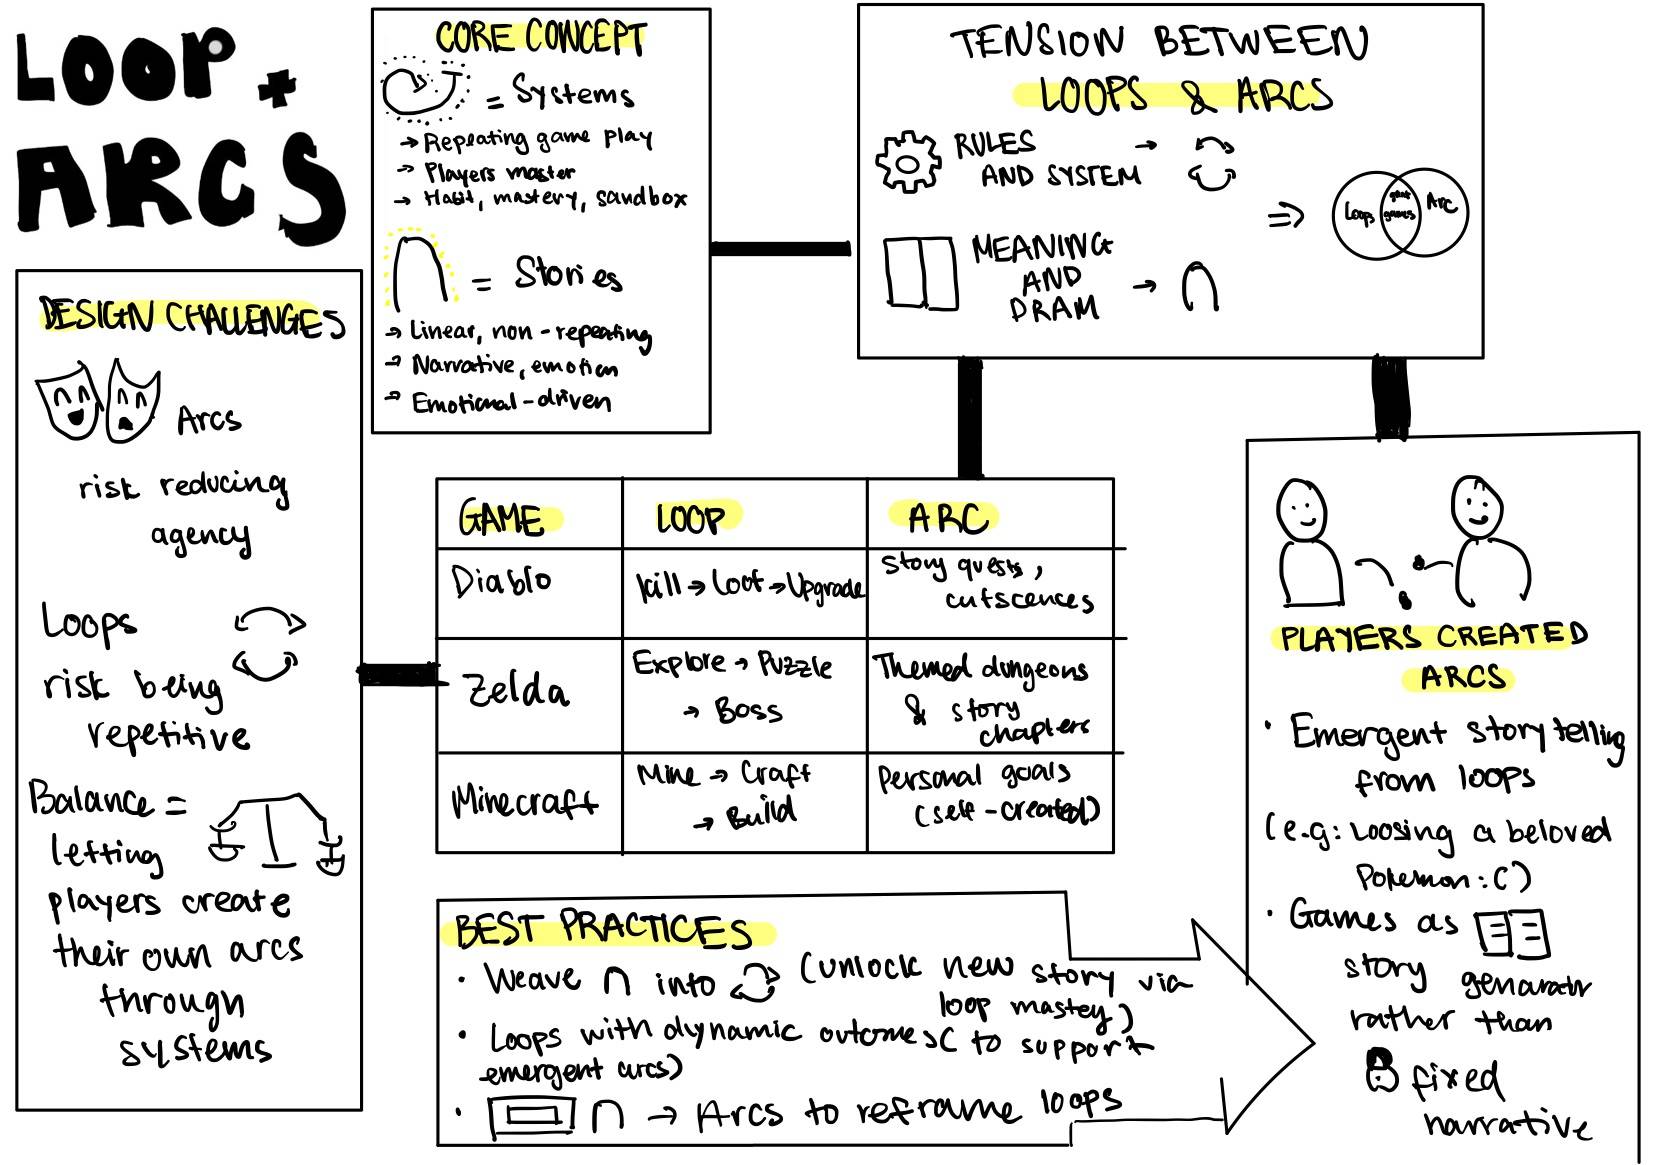 LOOP +
ARCS
CORE CONCEPT
= Systems
→ Repeating game play
→ Players master
→ Habit, mastery, sandbox
= Stories
→ Linear, non-repeating
→ Narrative, emotion
→ Emotional-driven
TENSION BETWEEN
LOOPS & ARCS
RULES →
AND SYSTEM
MEANING
AND →
DRAM
⇒
Loops
games
Arc
DESIGN CHALLENGES
Arcs
risk reducing
agency
Loops
risk being
repetitive
Balance =
letting
players create
their own arcs
through
systems
GAME LOOP ARC
Diablo
kill → Loot → Upgrade
Story quests,
cutscences
Zelda
Explore → Puzzle
→ Boss
Themed dungeons
& story
chapters
Minecraft
Mine → Craft
→ Build
Personal goals
(self-created)
BEST PRACTICES
· Weave ∩ into (unlock new story via
loop mastey)
· Loops with dynamic outcomes( to support
emergent arcs)
· ∩ → Arcs to reframe loops
PLAYERS CREATED
ARCS
· Emergent storytelling
from loops
(e.g: Loosing a beloved
Pokemon :( )
· Games as
story genaratr
rather than
fixed
narrative